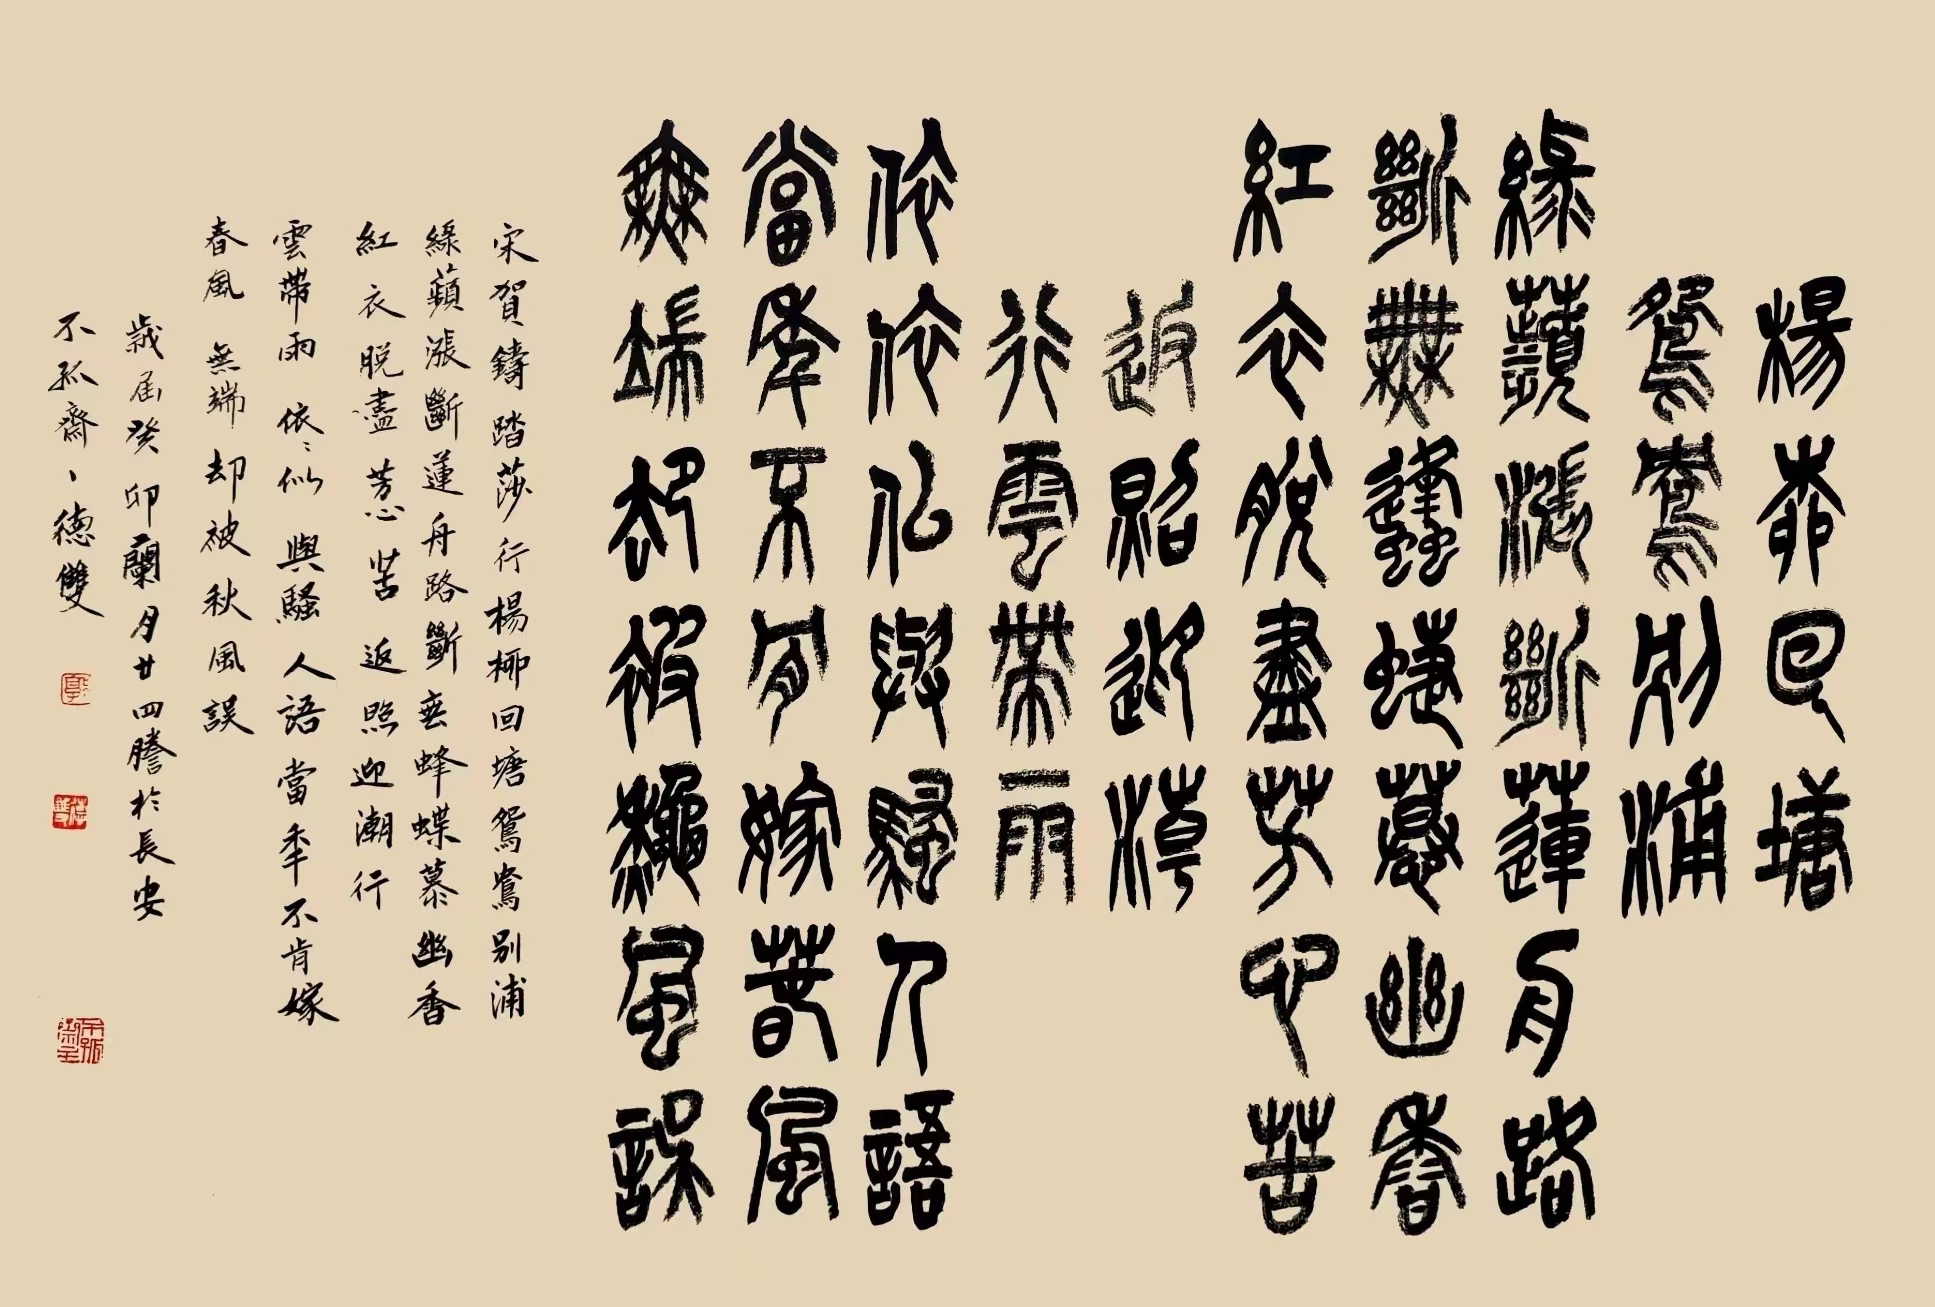 楊柳回塘
鴛鴦別浦
綠蘋漲斷蓮舟路
斷無蜂蝶慕幽香
紅衣脫盡芳心苦
返照迎潮
行雲帶雨
依依似與騷人語
當年不肯嫁春風
無端却被秋風誤
宋賀鑄踏莎行楊柳回塘鴛鴦別浦
綠蘋漲斷蓮舟路斷無蜂蝶慕幽香
紅衣脫盡芳心苦返照迎潮行
雲帶雨依〻似與騷人語當年不肯嫁
春風無端却被秋風誤
歲居癸卯蘭月廿四謄於長安
不孤齋丶德雙